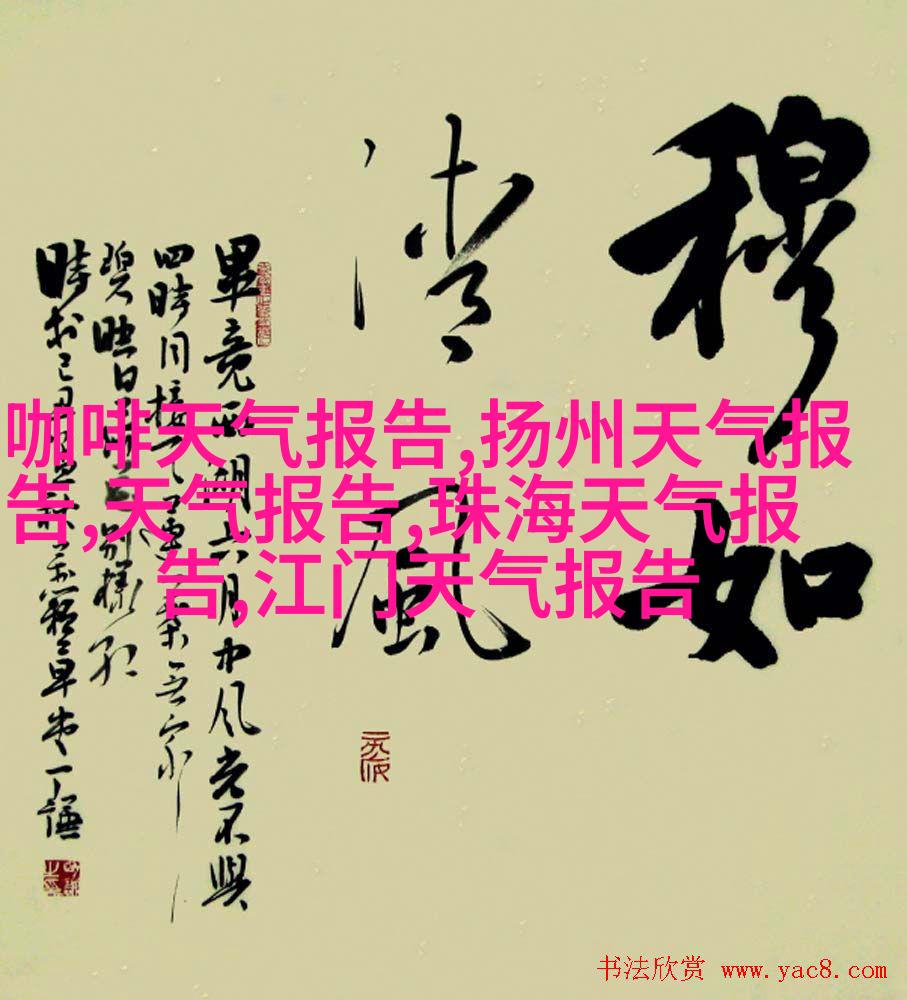 穆如
清風
畢竟西湖六月中风光不與
四時同接天蓮葉無窮
碧映日荷花別樣紅
時
咖啡天气报告,扬州天气报
告,天气报告,珠海天气报
告,江门天气报告
书法欣赏 www.yac8.com